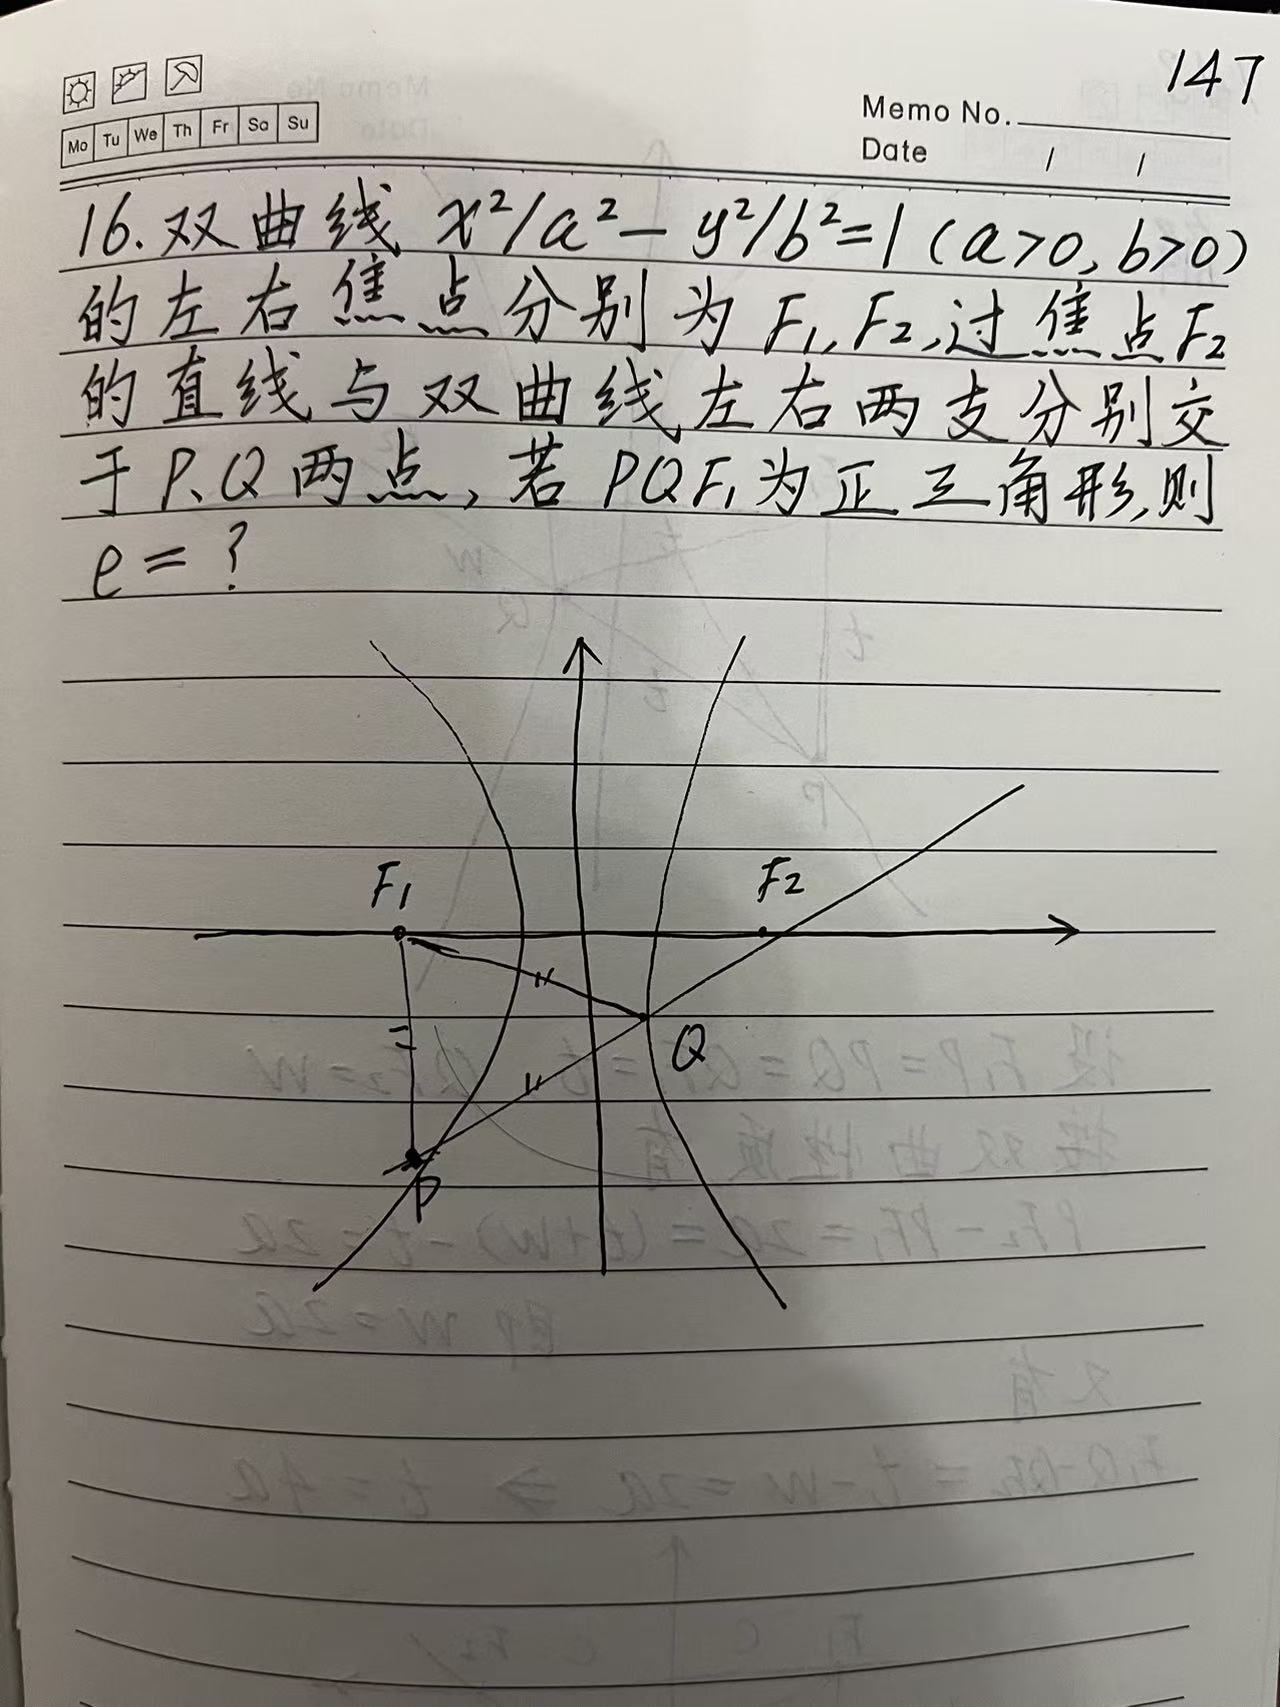 147
Memo No.
Mo Tu We Th Fr Sa Su
Date / /
16. 双曲线 x²/a² - y²/b² = 1 (a>0, b>0)
的左右焦点分别为F₁,F₂,过焦点F₂
的直线与双曲线左右两支分别交
于P、Q两点,若PQF₁为正三角形,则
e = ?
F₁
F₂
Q
P